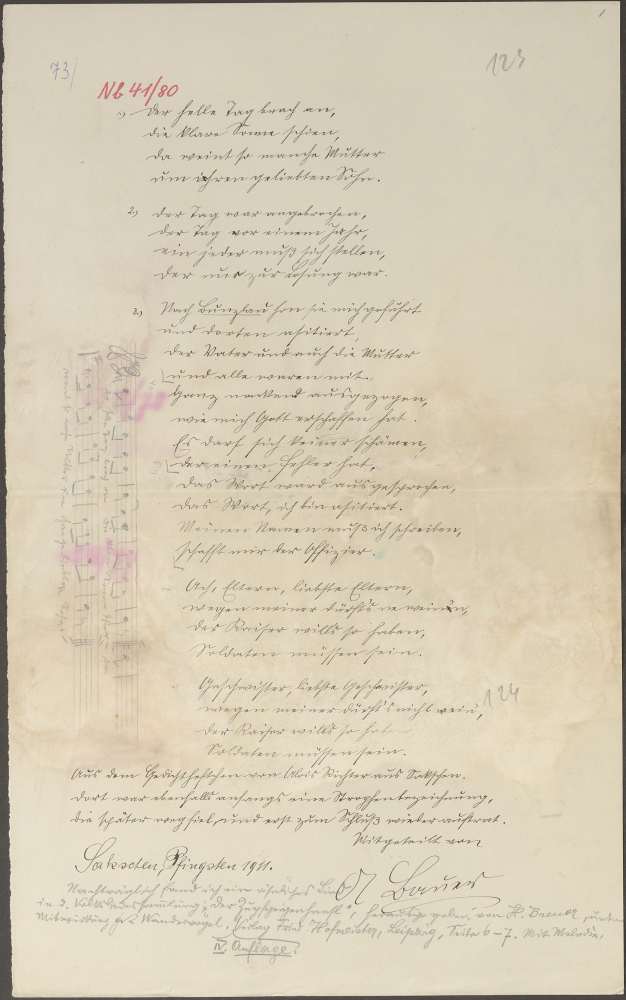 73/
123
Nb 41/80
1) Der helle Tag brach an,
die klare Sonne schien,
da weint so manche Mutter
um ihren geliebten Sohn.
2) Der Tag war angebrochen,
der Tag vor einem Jahr,
ein jeder muß sich stellen,
der nur zur Losung war.
3) Nach Bunzlau hon sie mich geführt
und dorten asitiert,
der Vater und auch die Mutter
und alle waren mit.
Ganz nackend ausgezogen,
wie mich Gott erschaffen hat.
Es darf sich keiner schämen,
der einen Fehler hat.
Das Wort ward ausgesprochen,
das Wort, ich bin asitiert.
Meinen Namen muß ich schreiben,
schafft mir der Offizier.
Ach, Eltern, liebste Eltern,
wegen meiner dürft's ne weinen,
der Kaiser wills so haben,
Soldaten müssen sein.
Geschwister, liebste Geschwister,
wegen meiner dürft's nicht wein,
der Kaiser wills so haben
Soldaten müssen sein.
124
Aus dem Gedichtheftchen von Alois Richter aus Sakschen.
Dort war ebenfalls anfangs eine Strophenbezeichnung,
die später wegfiel, und erst zum Schluß wieder auftrat.
Mitgeteilt von
Sakschen, Pfingsten 1911.
Bauer
Nachträglich fand ich ein ähnliches Lied
in d. Volksliedersammlung "Der Zupfgeigenhansl", herausgegeben von H. Breuer, unter
Mitwirkung der Wandervögel, Verlag Fried. Hofmeister, Leipzig, Seite 6-7. Mit Melodie,
IV. Auflage.